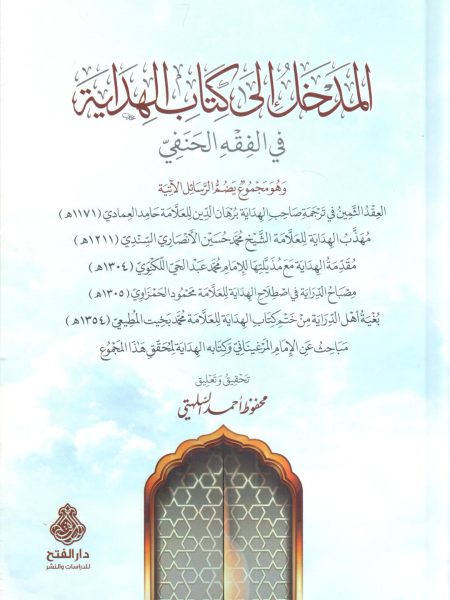 المَدْخَلُ إلى كِتَابِ الهِدَايَة
في الفِقْهِ الحَنَفِيّ
وهُوَ مَجْمُوعٌ يَضُمُّ الرَّسَائِلَ الآتِيَة
العِقْدُ الثَّمِينُ في تَرْجَمَةِ صَاحِبِ الهِدَايَةِ بُرْهَانِ الدِّينِ للعَلَّامَة حَامِد العِمادي (١١٧١هـ)
مُهَذَّبُ الهِدَايَةِ لِلعَلَّامَةِ الشَّيْخِ مُحَمَّد حُسَيْن الأَنْصَارِيِّ السِّنْدِي (١٢١١هـ)
مُقَدِّمَةُ الهِدَايَةِ مَعَ مُذَيَّلَتِهَا لِلإِمَامِ مُحَمَّد عَبْدِ الحَيّ اللَّكْنَوِيّ (١٣٠٤هـ)
مِصْبَاحُ الدِّرَايَةِ في اصْطِلَاحِ الهِدَايَةِ لِلعَلَّامَةِ مَحْمُود الحَمْزَاوِيّ (١٣٠٥هـ)
بُغْيَةُ أَهْلِ الدِّرَايَةِ مِنْ خَتْمِ كِتَابِ الهِدَايَةِ لِلعَلَّامَةِ مُحَمَّد بَخِيت المُطِيعِيّ (١٣٥٤هـ)
مَبَاحِثُ عَنِ الإِمَامِ المَرْغِينَانِيّ وَكِتَابِه الهِدَايَة لِمُحَقِّقِ هَذَا المَجْمُوع
تَحْقِيقُ وَتَعْلِيق
محفوظ أحمد السلهتي
دار الفتح
للدراسات والنشر